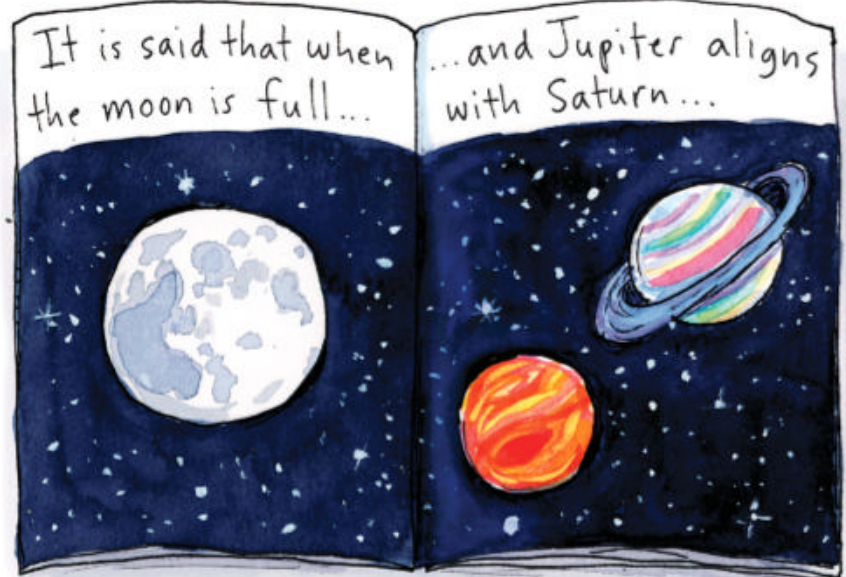 It is said that when
the moon is full...
...and Jupiter aligns
with Saturn...